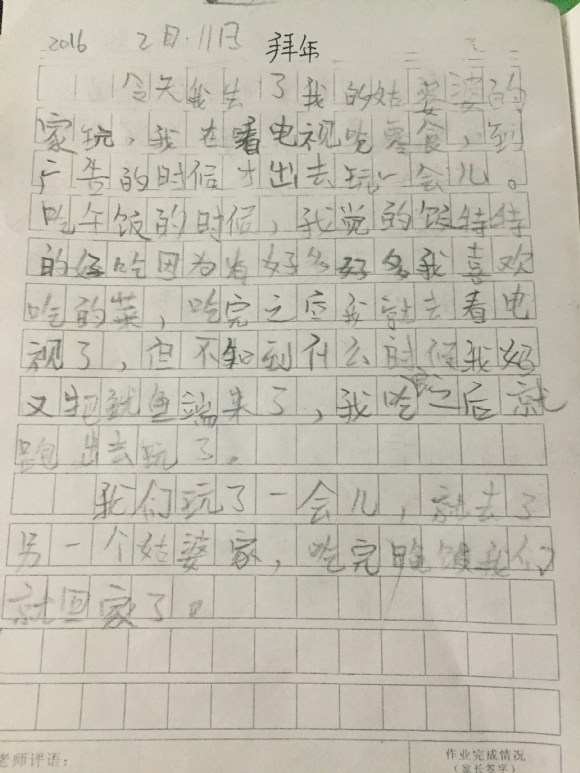 2016 2月·11日 拜年
今天我去了我的姑婆婆的
家玩，我在看电视吃零食，到
广告的时候才出去玩一会儿。
吃午饭的时候，我觉的饭特特
的好吃因为有好多好多我喜欢
吃的菜，吃完之后我就去看电
视了，但不知到什么时候我妈
又把鱿鱼端来了，我吃完之后就
跑出去玩了。
我们玩了一会儿，就去了
另一个姑婆家，吃完晚饭我们
就回家了。
老师评语：
作业完成情况
（家长签字）